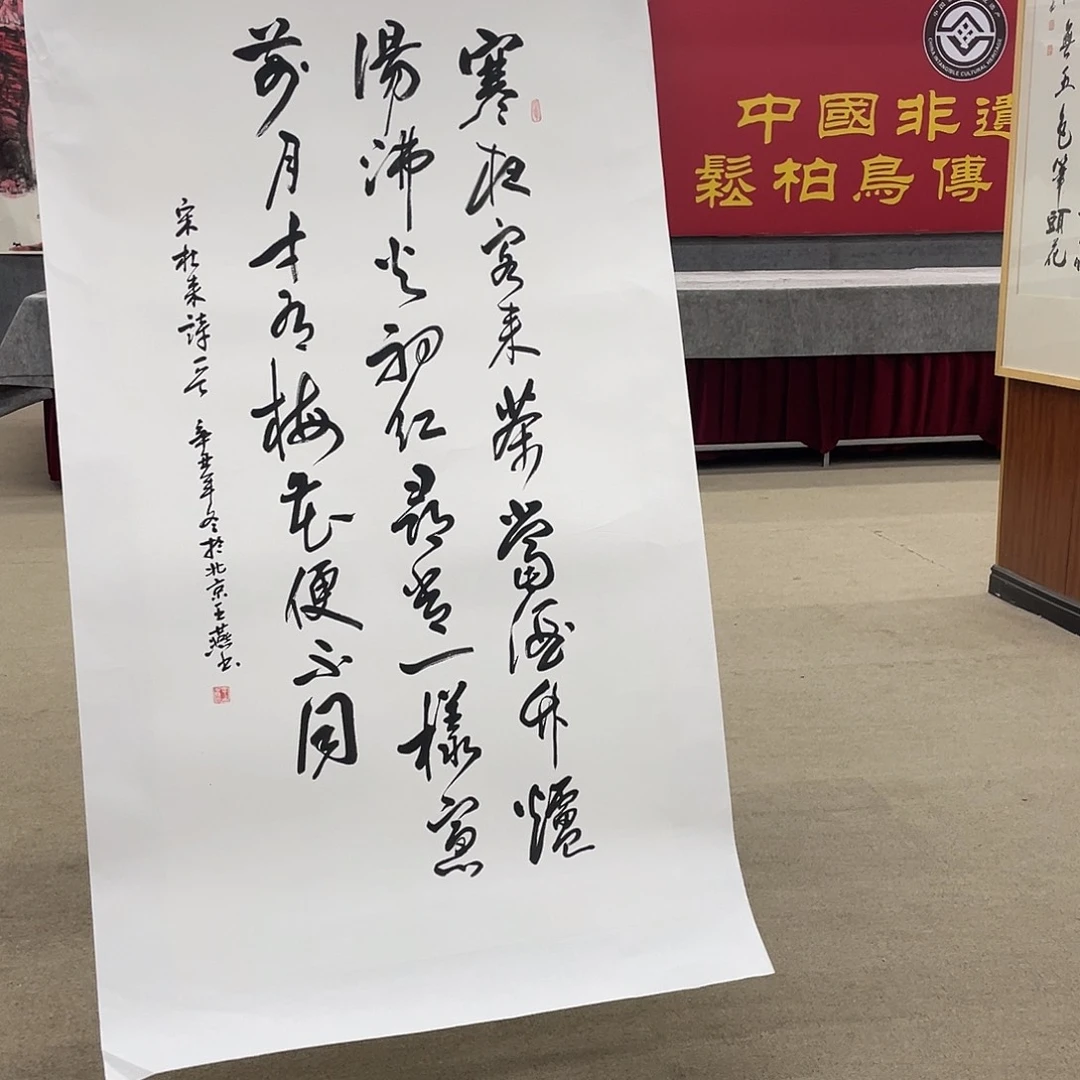 寒夜客来茶當酒竹爐
湯沸火初紅尋常一樣窗
前月才有梅花便不同
宋杜耒詩一首 辛丑年冬於北京王燕書
CHINA INTANGIBLE CULTURAL HERITAGE
中國非遺
鬆柏鳥傳
五色筆頭花